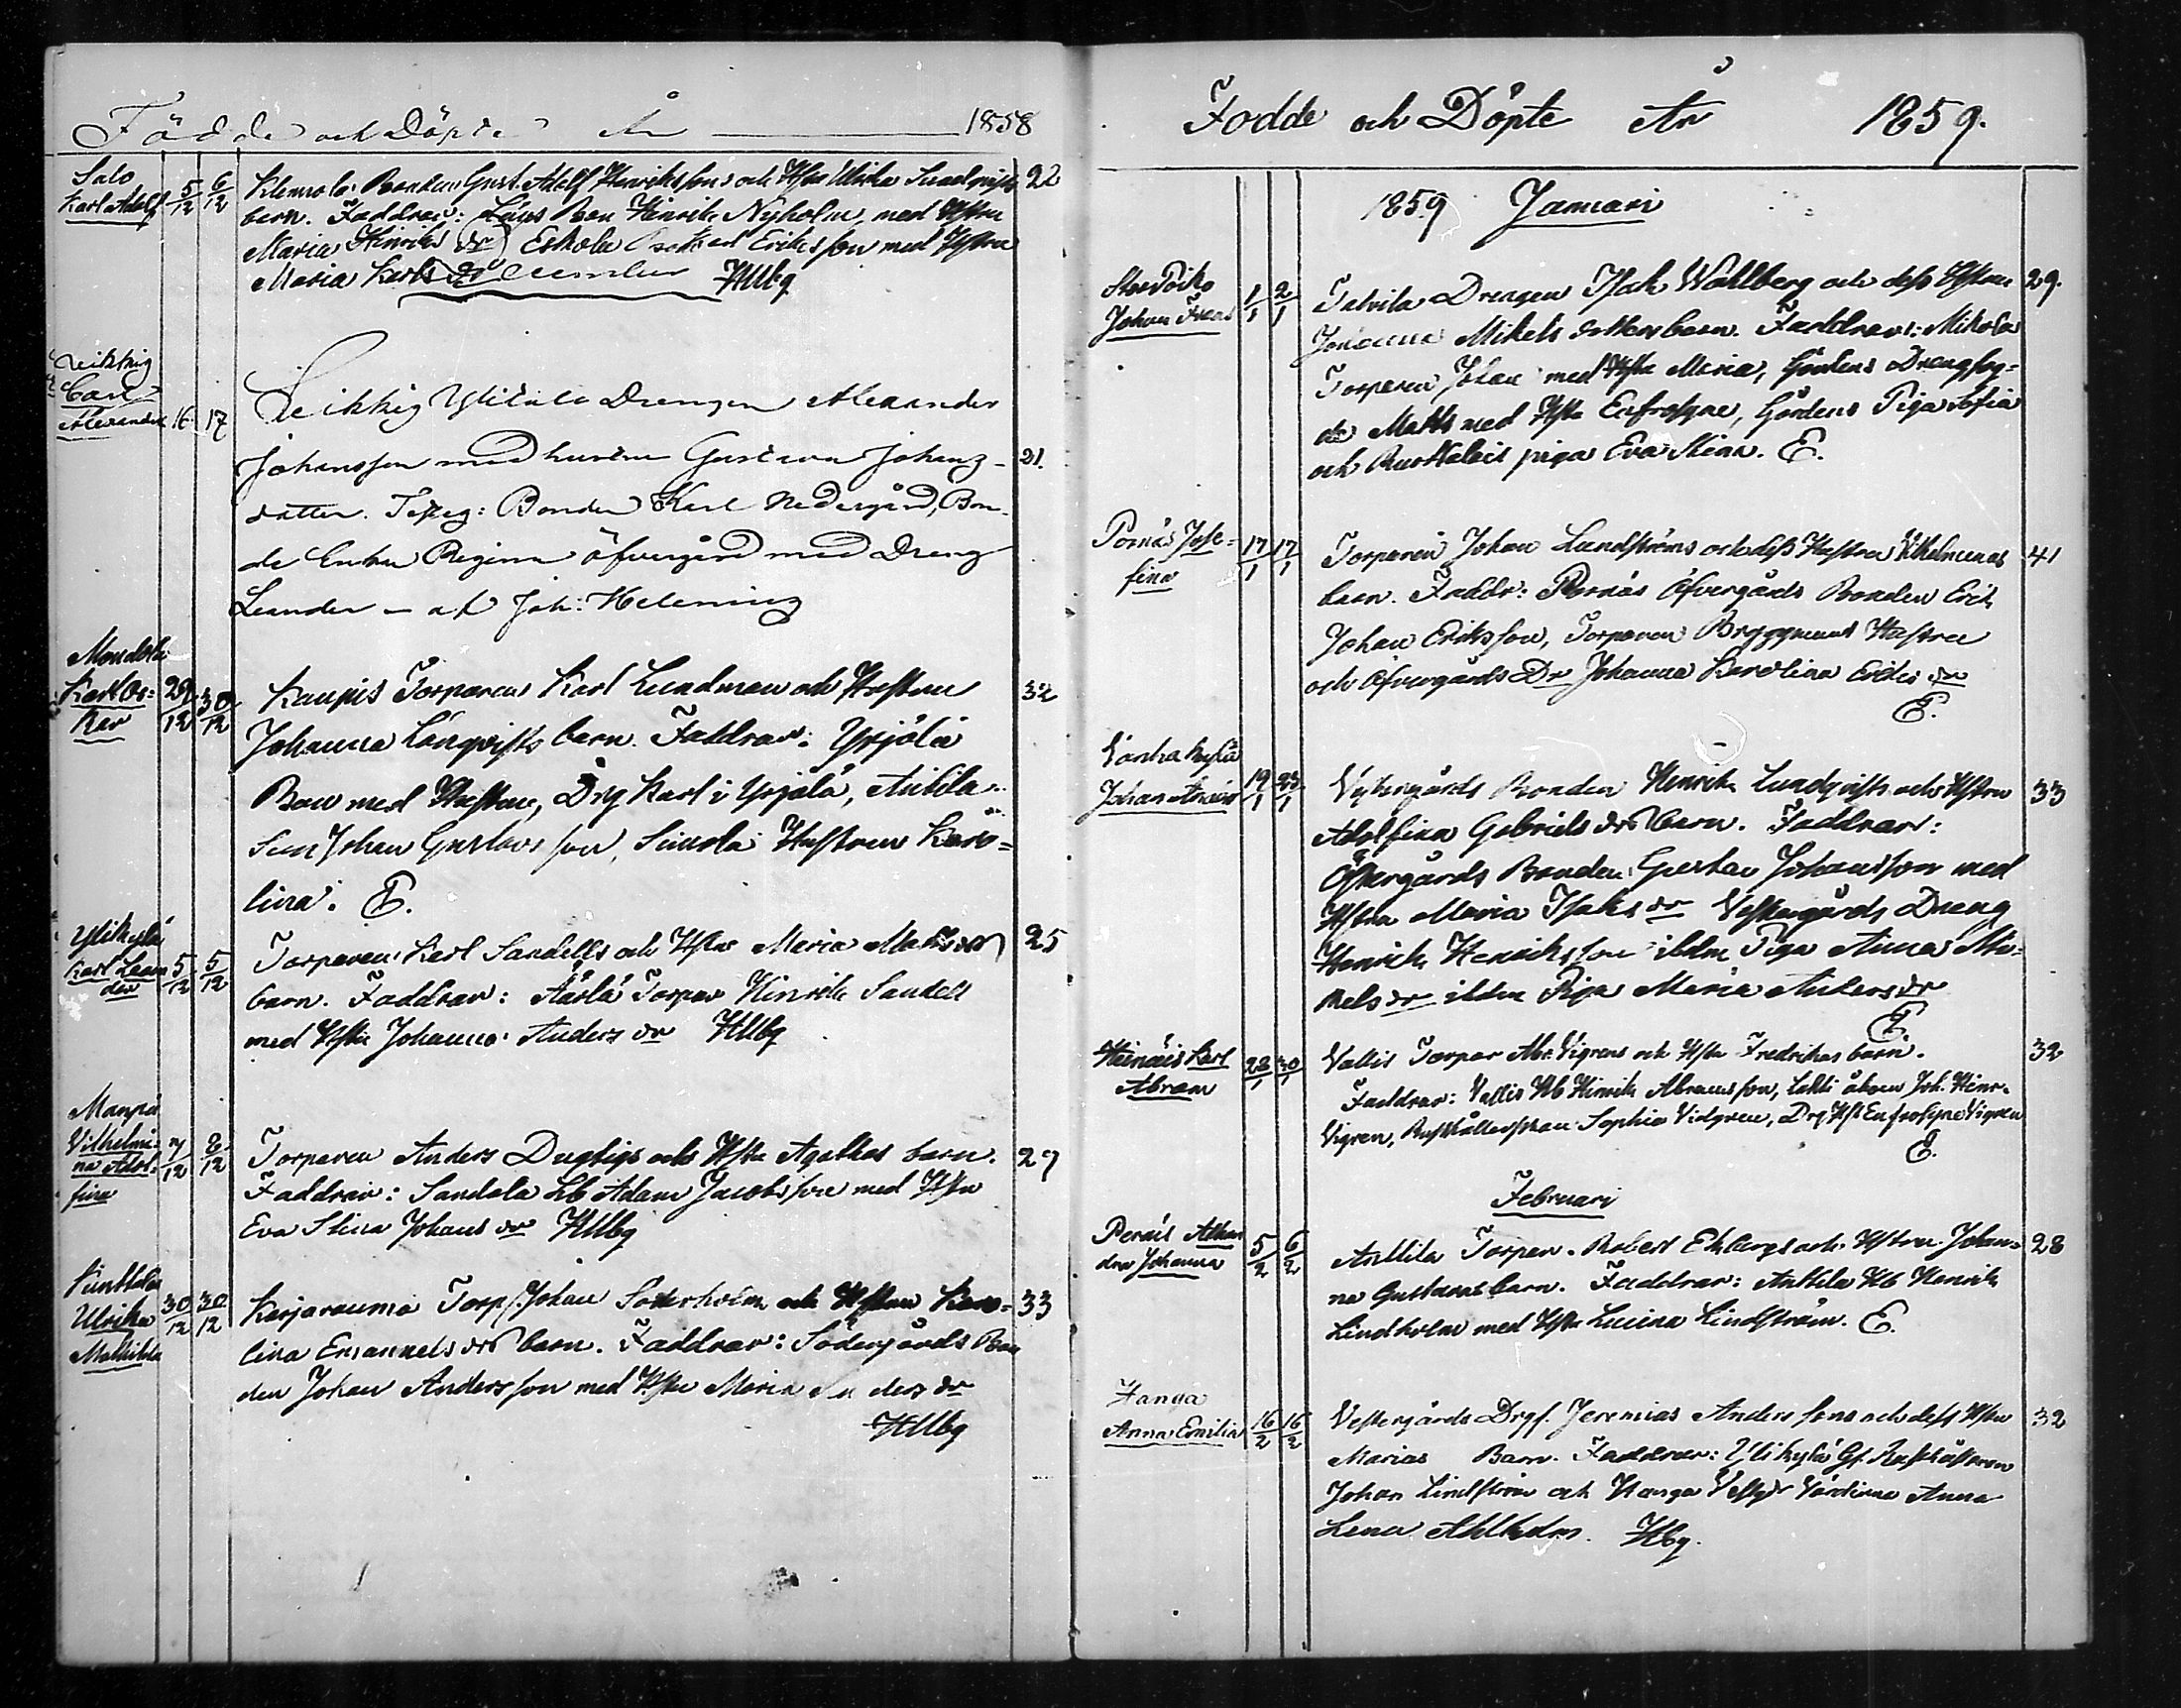 Födde och Döpte År 1858
Salo
Karl Adolf 5/12 6/12 Bonden Gust. Adolf Henrikssons och Hstr Ulrika 22
barn. Faddrar: Bon Henrik Nyholm med Hstru
Maria Henriks dr Eskola Eriksson med Hstru
Maria Karls dr HMbg
Carl
Alexander 16 17 Drengen Alexander
Johansson med hustrun Gustava Johans- 21.
dotter. Testeg: Bonden Karl Nedergård, Bon-
de Enkan Regina Öfvergård med Dreng
Leander — af Joh: Helenius
Karl Os-
kar 29/12 30/12 Kaupis Torparens Karl Lindman och Hustrun 32
Johanna Lönqvists barn. Faddrar: Ypjölä
Bon med Hustru, Drg Karl i Ypjälä, Anttila
Son Johan Gustavsson, Hustrun Karo-
lina. E.
Ylikylä
Karl Lean-
der 5/12 5/12 Torparen Karl Sandells och Hstr Maria Matts dr 25
barn. Faddrar: Torpar Henrik Sandell
med Hstr Johanna Anders dr HMbg
Vilhelmi-
na Adol-
fina 7/12 8/12 Torparen Anders Dugligs och Hstr Agathas barn. 27
Faddrar: Sandola Lb Adam Jacobsson med Hstr
Eva Stina Johans dr HMbg
Punttila
Ulrika
Mathilda 30/12 30/12 Karjarauma Torp. Johan Söderholm och Hstrun Karo- 33
lina Emanuels dr barn. Faddrar: Södergårds Bon
den Johan Andersson med Hstr Maria Anders dr
HMbg
Födde och Döpte År 1859.
1859 Januari
Johan Frans 1/1 2/1 Talvila Drengen Isak Wahlberg och dess Hstrus 29.
Johanna Mikels dotters barn. Faddrar: Mikola
Torparen Johan med Hstr Maria, Gårdens Drengfog-
de Matts med Hstr Eufrosyne, Gårdens Piga Sofia
och piga Eva Stina. E.
Pornäs Jose-
fina 17/1 17/1 Torparen Johan Lundströms och dess Hustru Vilhelminas 41
barn. Faddr: Pornäs Öfvergårds Bonden Erik
Johan Eriksson, Torparen Bryggmans Hustru
och Öfvergårds Dr Johanna Karolina Eriks dr
E.
Vanhakylä
Johan 19/1 23/1 Vestergårds Bonden Henrik Lundqvists och Hstru 33
Adolfina Gabriels dr barn. Faddrar:
Östergårds Bonden Gustav Johansson med
Hstru Maria Isaks dr Vestergårds Dreng
Henrik Henriksson ibdm Piga Anna Mi-
kels dr ibdm Piga Maria Anders dr
E.
Heinäis Karl
Abram 28/1 30/1 Vallis Torpar Abr. Vigrens och Hstr Fredrikas barn. 32
Faddrar: Vallis Hb Henrik Abramsson, Lahti åboen Joh. Henr.
Vigren, Rusthållerskan Sophia Vidgren, Drg Hst Eufrosyne Vigren
E.
Februari
Alexan
dra Johanna 5/2 6/2 Anttila Torpar. Robert Ekbergs och Hstrun Johan- 28
na Gustavas barn. Faddrar: Anttila Hb Henrik
Lindholm med Hstr Lucina Lindström. E.
Hanga
Anna Emilia 16/2 16/2 Vestergårds Drgf. Jeremias Anderssons och dess Hstru 32
Marias Barn. Faddrar: Ylikylä Gf. Rusthållaren
Johan Lindström och Hanga Vestgr Värdinna Anna
Lena Ahlholm. Hbg.